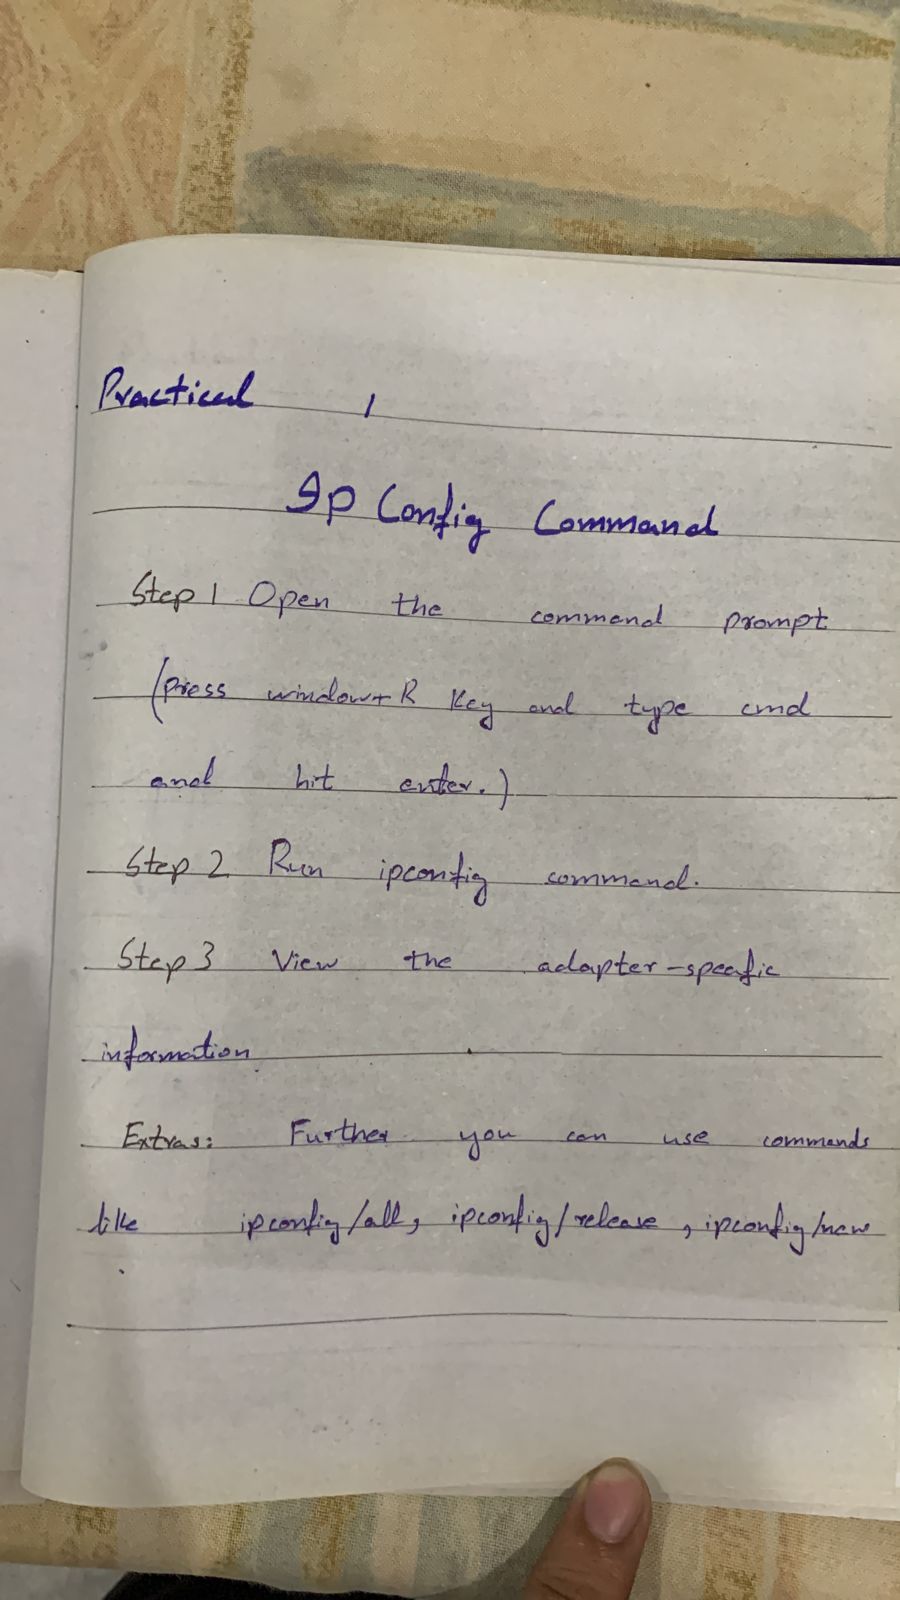 Practical 1
Ip Config Command
Step 1 Open the command prompt
(press window+R Key and type cmd
and hit enter.)
Step 2 Run ipconfig command.
Step 3 View the adapter-specific
information
Extras: Further you can use commands
like ipconfig/all, ipconfig/release, ipconfig/new